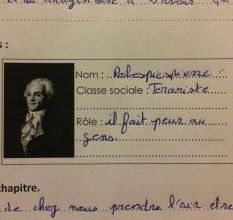 s :
Nom : Robespierre
Classe sociale : Terroriste
Rôle : il fait peur au
gens
chapitre.
de chez nous prendre l'air et re